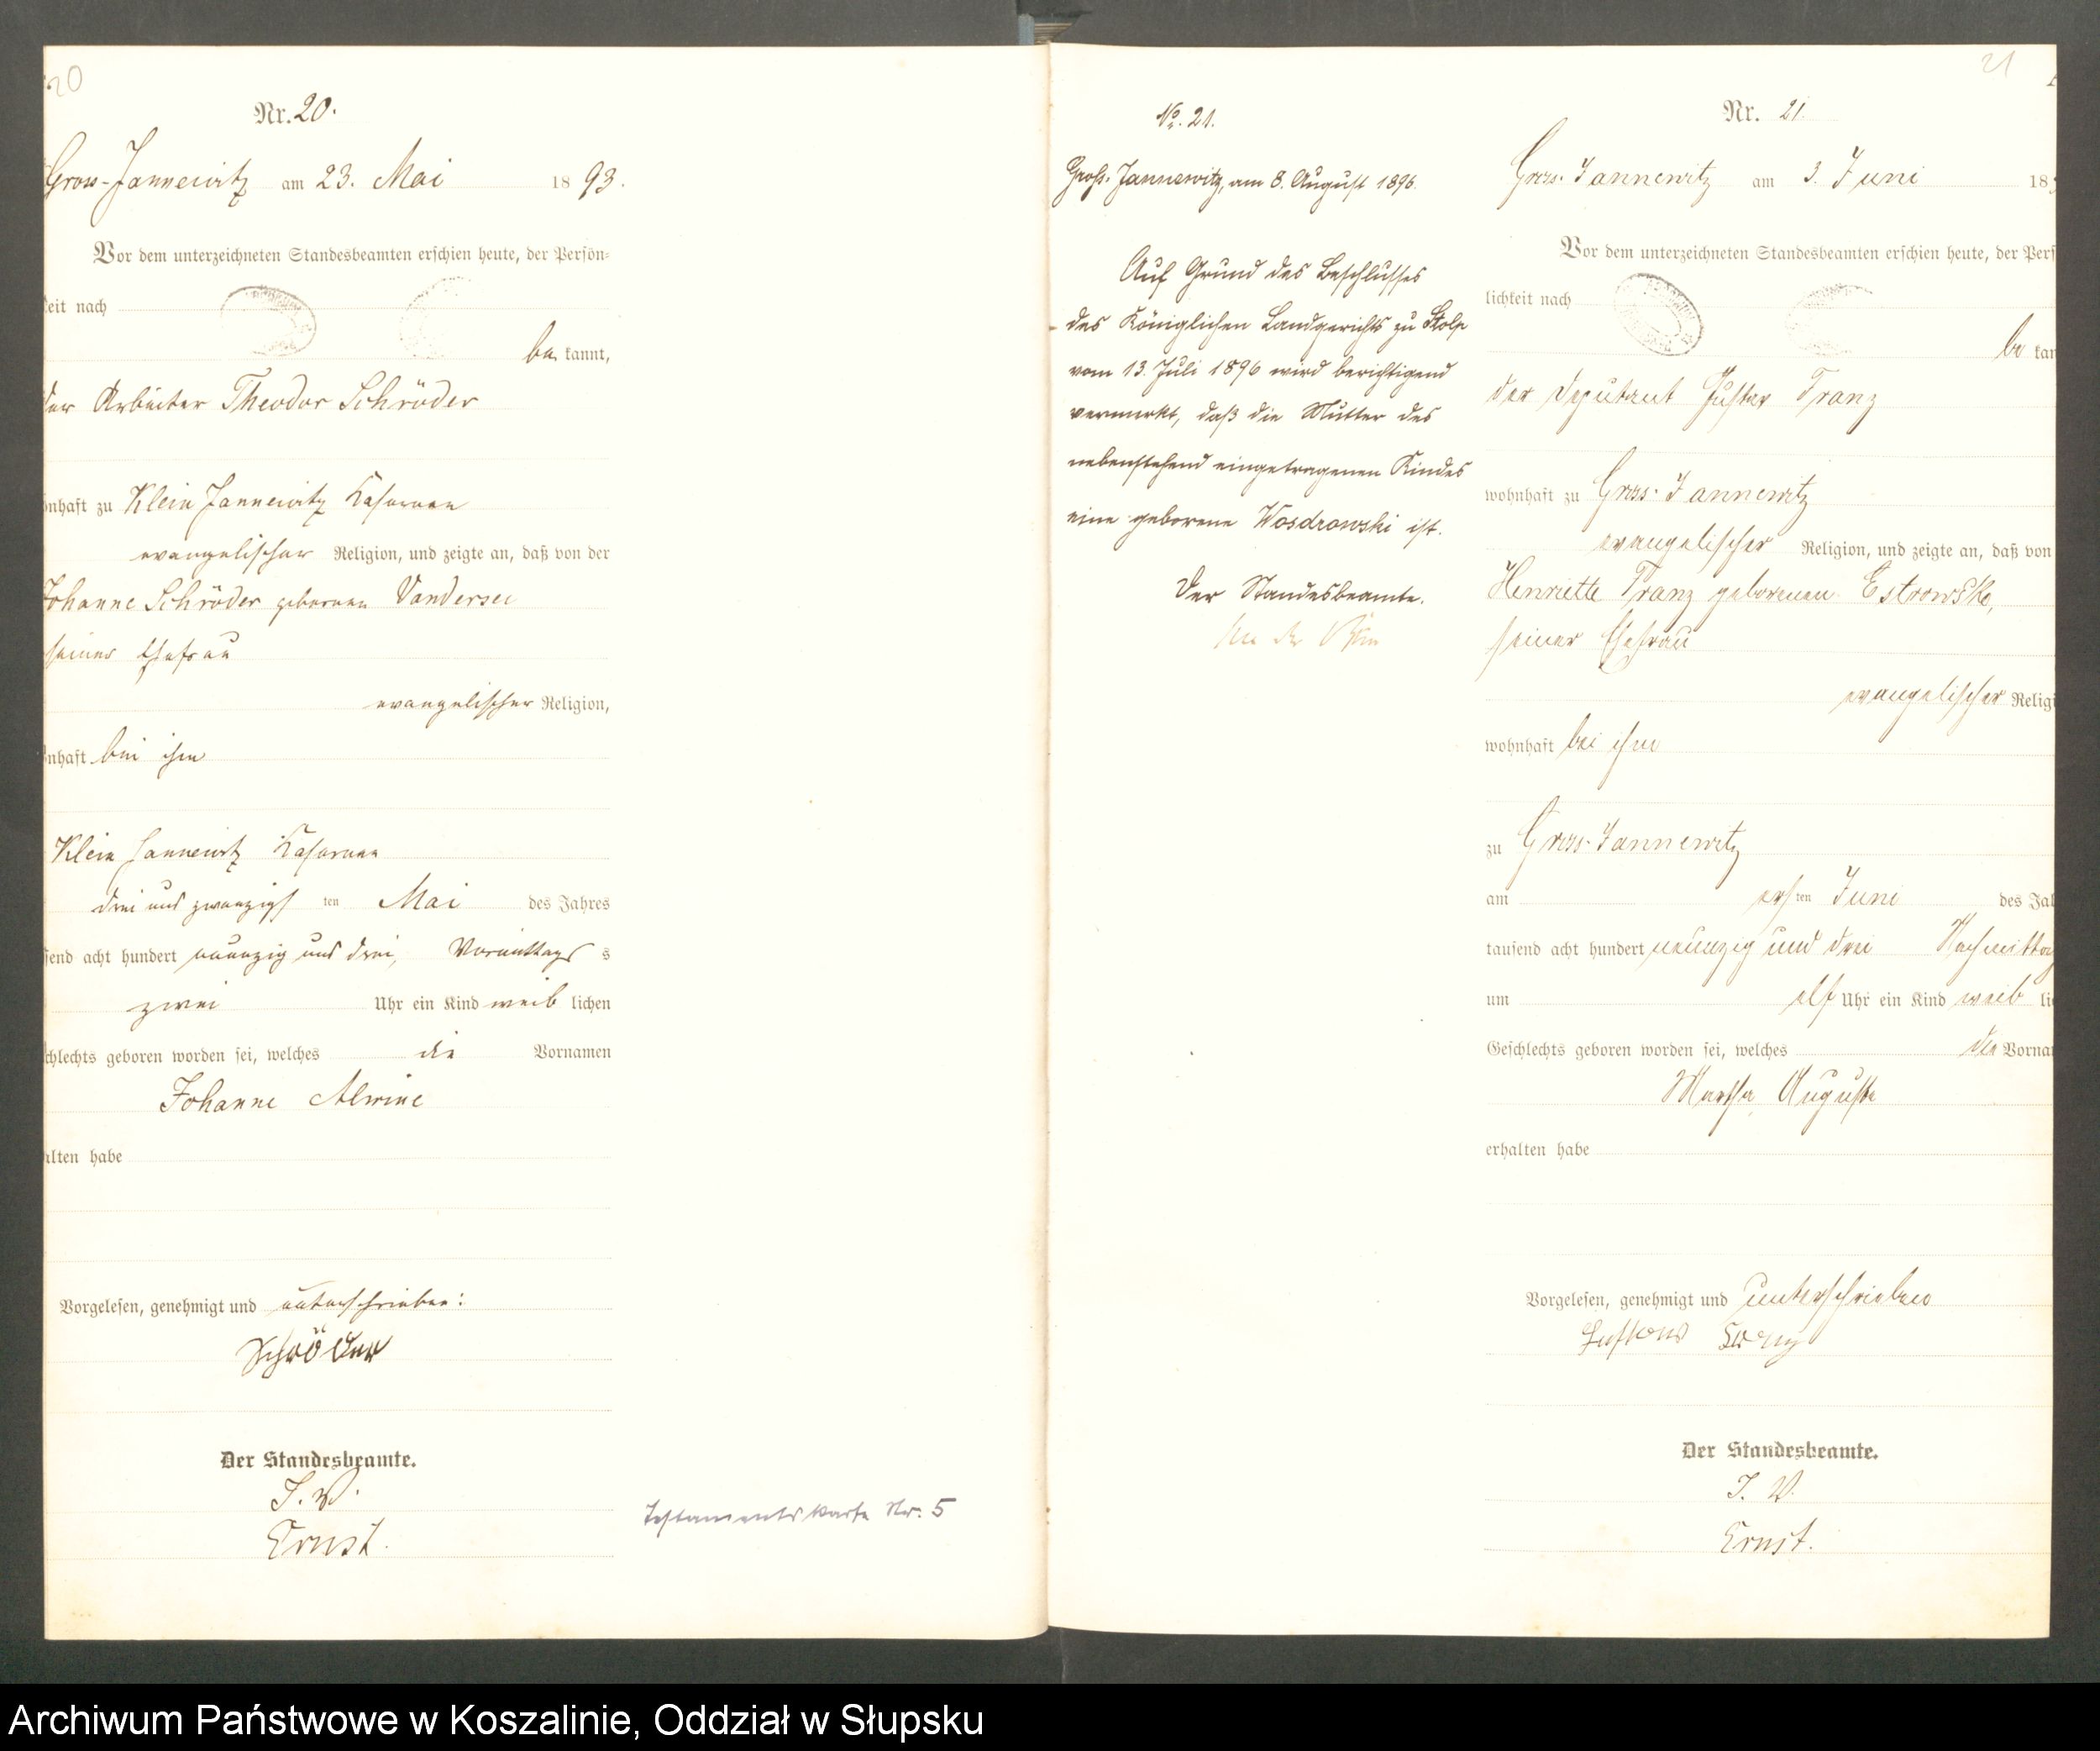 20
Nr. 20.
Gross-Jannewitz am 23. Mai 1893.
Vor dem unterzeichneten Standesbeamten erschien heute, der Persön-
keit nach
be kannt,
der Arbeiter Theodor Schröder
wohnhaft zu Klein Jannewitz
evangelischer Religion, und zeigte an, daß von der
Johanne Schröder geborenen Vandersee
seiner Ehefrau
evangelischer Religion,
wohnhaft bei ihm
Klein Jannewitz
drei und zwanzigsten Mai des Jahres
tausend acht hundert neunzig und drei, Vormittags
zwei Uhr ein Kind weiblichen
Geschlechts geboren worden sei, welches die Vornamen
Johanne Alwine
erhalten habe
Vorgelesen, genehmigt und unterschrieben:
Schröder
Der Standesbeamte.
I. V.
Ernst.
Testamentskarte Nr. 5
No. 21.
Groß-Jannewitz, am 8. August 1896.
Auf Grund des Beschlusses
des Königlichen Landgerichts zu Stolp
vom 13. Juli 1896 wird berichtigend
vermerkt, daß die Mutter des
nebenstehend eingetragenen Kindes
eine geborene Wosdrowski ist.
Der Standesbeamte.
21
Nr. 21.
Gross-Jannewitz am 3. Juni 18
Vor dem unterzeichneten Standesbeamten erschien heute, der Pers
lichkeit nach
be kan
der Deputant Gustav Franz
wohnhaft zu Gross-Jannewitz
evangelischer Religion, und zeigte an, daß von
Henriette Franz geborenen Estrowske,
seiner Ehefrau
evangelischer Religi
wohnhaft bei ihm
zu Gross-Jannewitz
am ersten Juni des Jah
tausend acht hundert neunzig und drei Nachmittag
um elf Uhr ein Kind weib li
Geschlechts geboren worden sei, welches die Vorna
Martha Auguste
erhalten habe
Vorgelesen, genehmigt und unterschrieben
Gustav Franz
Der Standesbeamte.
I. V.
Ernst.
Archiwum Państwowe w Koszalinie, Oddział w Słupsku